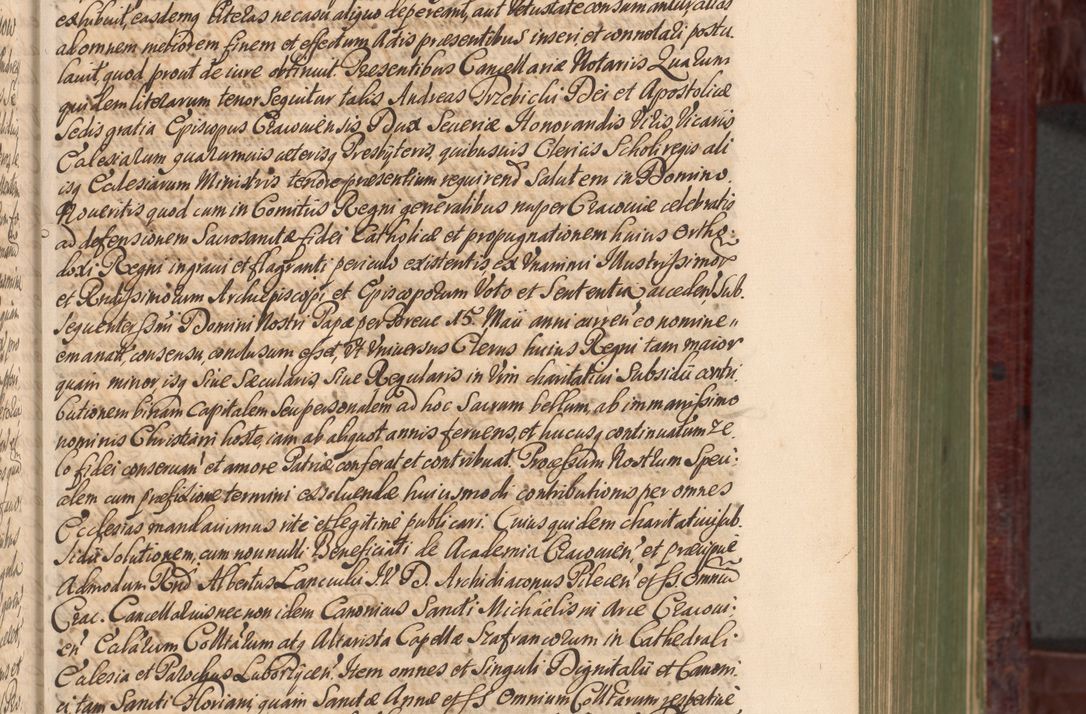 exhibuit, easdemq literas ne casu aliquo depereant, aut vetustate consumantur alias
ab omnem meliorem finem et effectum Actis præsentibus inseri et connotari postu
lavit, quod prout de iure obtinuit. Præsentibus Cancellariæ Notariis Quarum
quidem literarum tenor sequitur talis Andreas Trzebicki Dei et Apostolicæ
Sedis gratia Episcopus Cracoviensis Dux Severiæ Honorandis Viris Vicariis
Ecclesiarum quarumvis cæterisq Presbyteris, quibusvis Clericis Scholi regis ali
isq Ecclesiarum Ministris tenore præsentium requirend Salutem in Domino
Noveritis quod cum in Comitiis Regni generalibus nuper Cracoviæ celebratis
ad defensionem Sacrosanctæ fidei Catholicæ et propugnationem huius Ortho:
doxi Regni ingravi et flagranti periculo existentis, ex Unanimi Illustrissimor
et Rndissimorum Archiepiscopi et Episcoporum Voto et Sententia acceden Sub.
sequenter Ssmi Domini Nostri Papæ per Breve 15 Maii anni curren eo nomine
emanati, consensu, conclusum esset, Ut Universus Clerus huius Regni tam maior
quam minor isq Sive Sæcularis, Sive Regularis in Vim charitativi Subsidii contri
butionem binam capitalem Seu personalem ad hoc Sacrum bellum ab immanissimo
nominis Christiani hoste, iam ab aliquot annis fervens, et hucusq continuatum Ze
lo fidei conservan et amore Patriæ conferat et contribuat. Processum Nostrum Speci:
alem cum præfixione termini exsolvendæ huiusmodi contributionis per omnes
Ecclesias mandavimus rite et legitime publicari. Cuius quidem charitativi sub.
sidii Solutionem, cum nonnulli Beneficiati de Academia Cracovien et præcipue
Admodum Rnd Albertus Lancucki I.V.D. Archidiaconus Pilecen et SS Omnium
Crac. Cancellarius nec non idem Canonicus Sancti Michaelis in Arce Cracovi:
en Ecclarum Colltarum atq Altarista Capellæ Szafrancorum in Cathedrali
Ecclesia et Parochus Luborzycen. Item omnes et Singuli Dignitarii et Canoni.
ci tam Sancti Floriani, quam Sanctæ Annæ et SS Omnium Colltarum respective